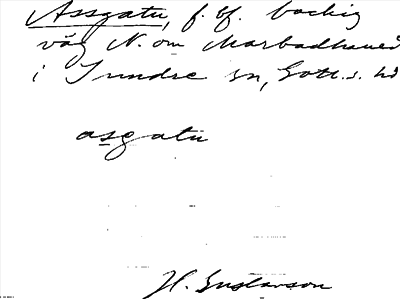 Assgatu, f. öf. backig
väg N. om Marbodhaued
i Sundre sn, Gotl. s. hd
asgatu
H. Gustavson